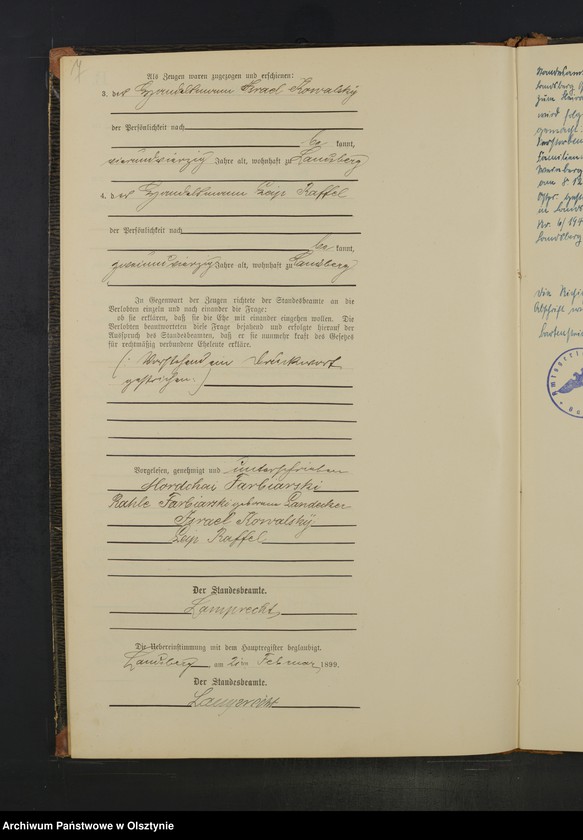 7
Als Zeugen waren zugezogen und erschienen:
3. der Handelsmann Israel Kowalsky
der Persönlichkeit nach
be kannt,
vierundvierzig Jahre alt, wohnhaft zu Landsberg
4. der Handelsmann Raffel
der Persönlichkeit nach
be kannt,
zweiundvierzig Jahre alt, wohnhaft zu Landsberg
In Gegenwart der Zeugen richtete der Standesbeamte an die
Verlobten einzeln und nach einander die Frage:
ob sie erklären, daß sie die Ehe mit einander eingehen wollen. Die
Verlobten beantworteten diese Frage bejahend und erfolgte hierauf der
Ausspruch des Standesbeamten, daß er sie nunmehr kraft des Gesetzes
für rechtmäßig verbundene Eheleute erkläre.
(: Vorstehend ein Druckwort
gestrichen. :)
Vorgelesen, genehmigt und unterschrieben
Mordchai Farbiarski
Rahle Farbiarski geborene Landecker
Israel Kowalsky
Raffel
Der Standesbeamte.
Lamprecht
Die Uebereinstimmung mit dem Hauptregister beglaubigt.
Landsberg, am 2ten Februar 1899.
Der Standesbeamte.
Lamprecht
Standesamt
Landsberg
zum
wird folg
gemacht
Familien
am
Nr. 6/194
Landsberg
Die
Abschrift
Bartenstein
Amtsgeri
Archiwum Państwowe w Olsztynie